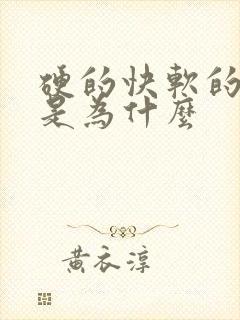 硬的快軟的
是為什麼
黃衣淳